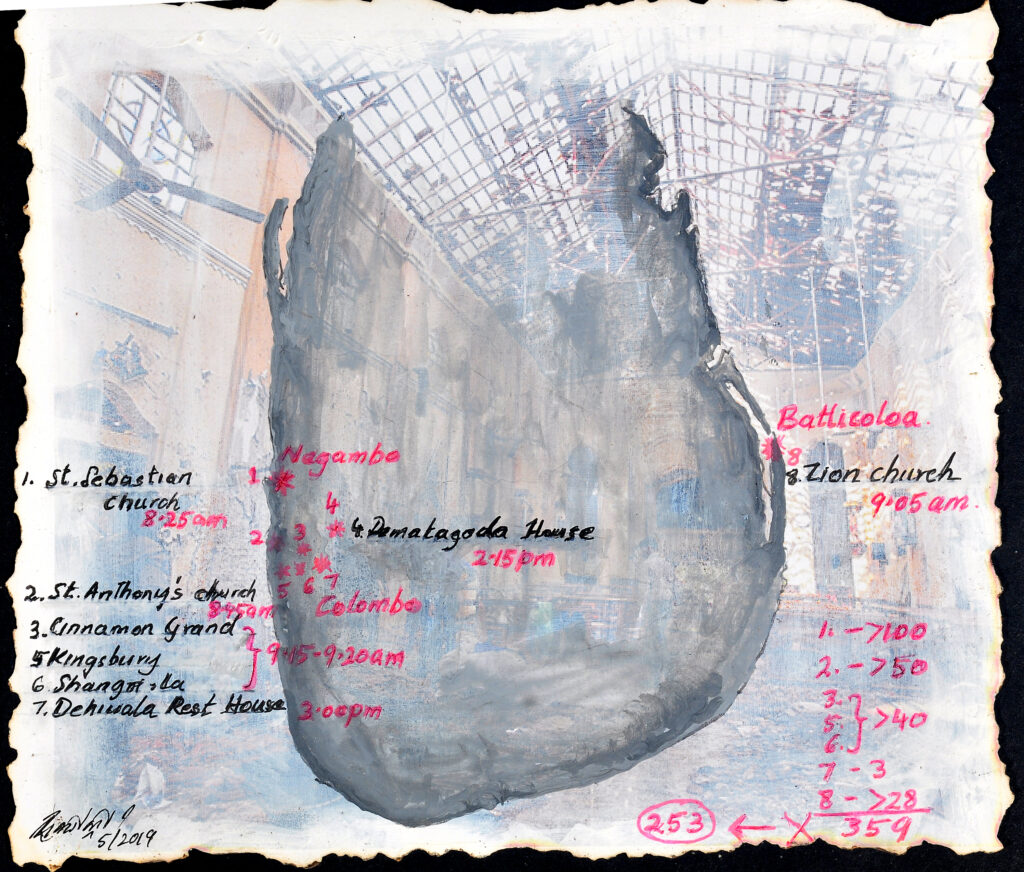 Batticoloa.
Nagambo
1. St. Sebastian
church
8.25am
1
8
8. Zion church
9.05am.
4
2
3
4. Dematagoda House
2.15pm
5 6 7
Colombo
2. St. Anthony's church
8.45am
3. Cinnamon Grand
5 Kingsbury
6. Shangri-la
9.15-9.20am
7. Dehiwala Rest House
3.00pm
1. ->100
2. ->50
3.
5.
6.
>40
7 - 3
8 ->28
359
253 ← X
5/2019